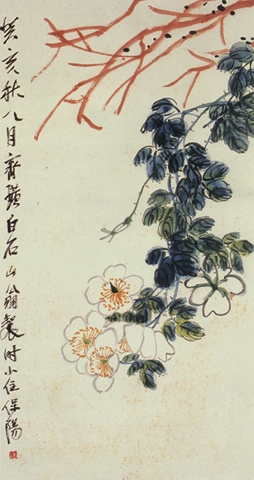 癸亥秋八月齊璜白石山翁製時小住保陽